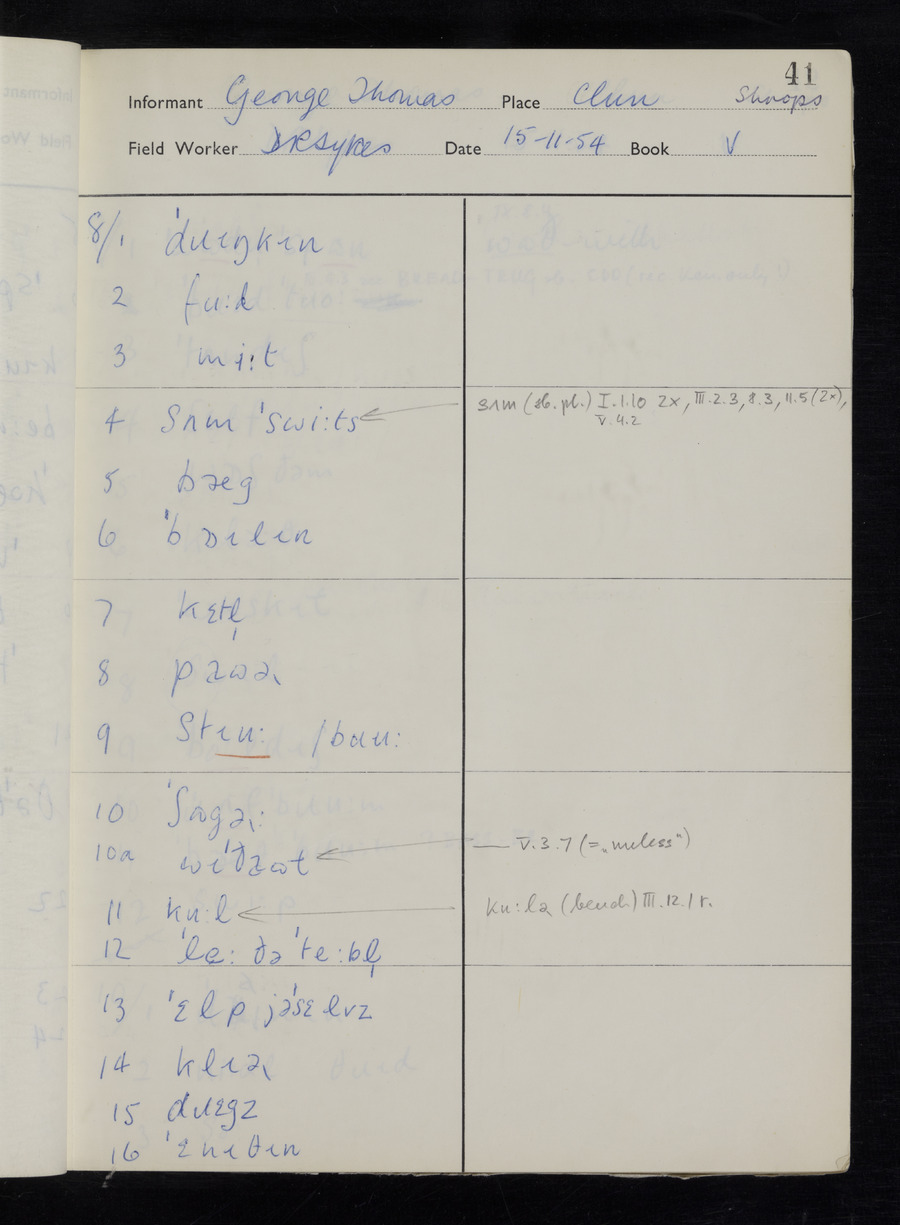 41
Informant George Thomas Place Clun Shrops
Field Worker DRSykes Date 15-11-54 Book V
8/1 ˈdɹɪŋkɪn
2 fu:d
3 mi:t
4 sʌm ˈswi:ts
ʒʌm (sb. pl.) I.1.10 2x, III.2.3, 8.3, 11.5 (2x),
V.4.2
5 bæg
6 ˈbɔɪlɪn
7 kɛtl̩
8 pəωə
9 /baɹ:
10 ˈʃʌgə:
10a
V.3.7 (= „unless")
11 ku:l
ku:lə (bench) III.12.1 r.
12 ˈlɛ: ðə ˈte:bl̩
13 ˈɛlp jəˈsɛlvz
14 klɪə
15 dɹɛgz
16 ˈɛnɪθɪn